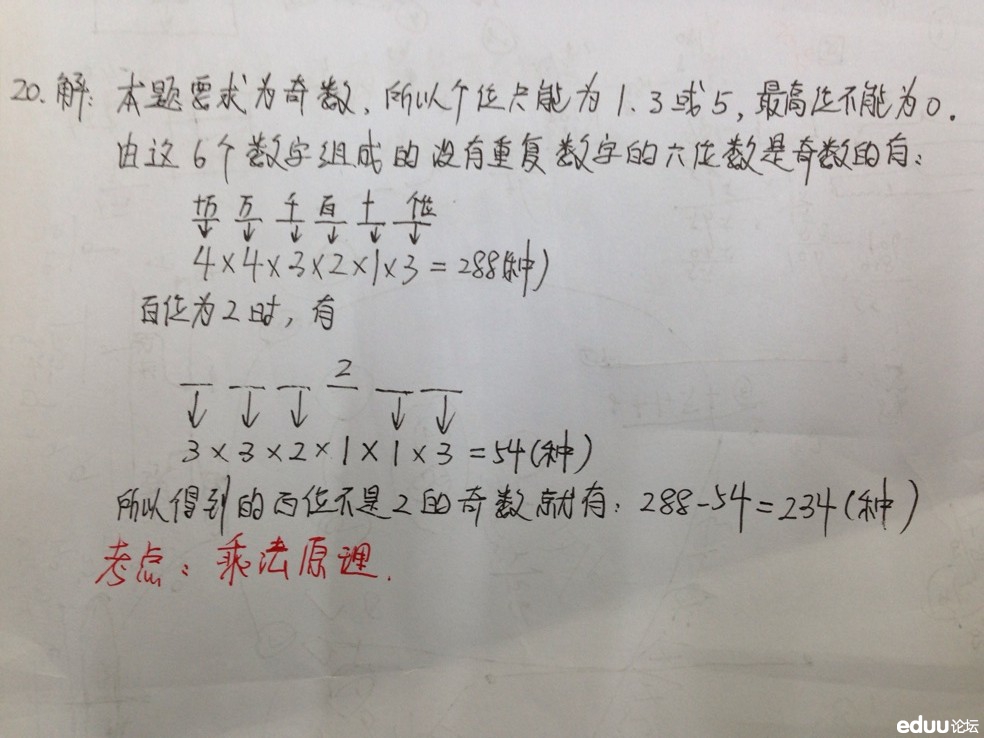 20. 解: 本题要求为奇数，所以个位只能为1.3或5，最高位不能为0.
由这6个数字组成的没有重复数字的六位数是奇数的有:
十万 万 千 百 十 个位
4×4×3×2×1×3=288(种)
百位为2时，有
2
3×3×2×1×1×3=54(种)
所以得到的百位不是2的奇数就有: 288-54=234(种)
考点: 乘法原理.
eduu论坛